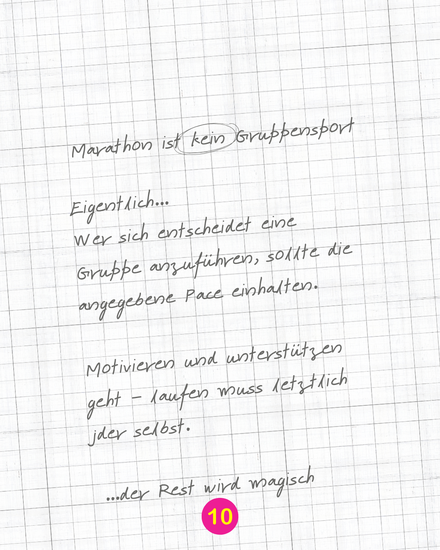 Marathon ist kein Gruppensport
Eigentlich...
Wer sich entscheidet eine
Gruppe anzuführen, sollte die
angegebene Pace einhalten.
Motivieren und unterstützen
geht – laufen muss letztlich
jder selbst.
...der Rest wird magisch
10